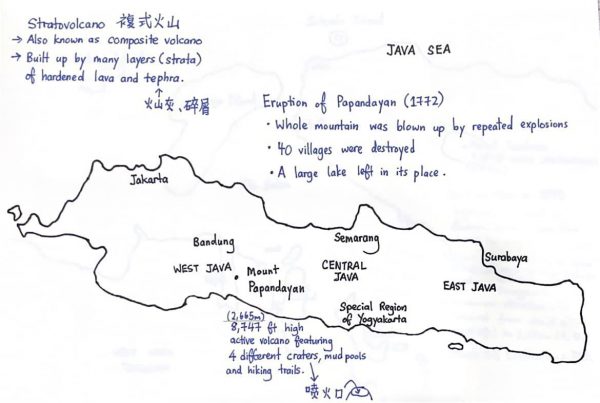 Stratovolcano 複式火山
→ Also known as composite volcano
→ Built up by many layers (strata)
of hardened lava and tephra.
↑
火山灰、碎屑
JAVA SEA
Eruption of Papandayan (1772)
• Whole mountain was blown up by repeated explosions
• 40 villages were destroyed
• A large lake left in its place.
Jakarta
Bandung
Semarang
Surabaya
WEST JAVA
Mount
Papandayan
CENTRAL
JAVA
EAST JAVA
Special Region
of Yogyakarta
(2,665m)
8,747 ft high
active volcano featuring
4 different craters, mud pools
and hiking trails.
喷火口